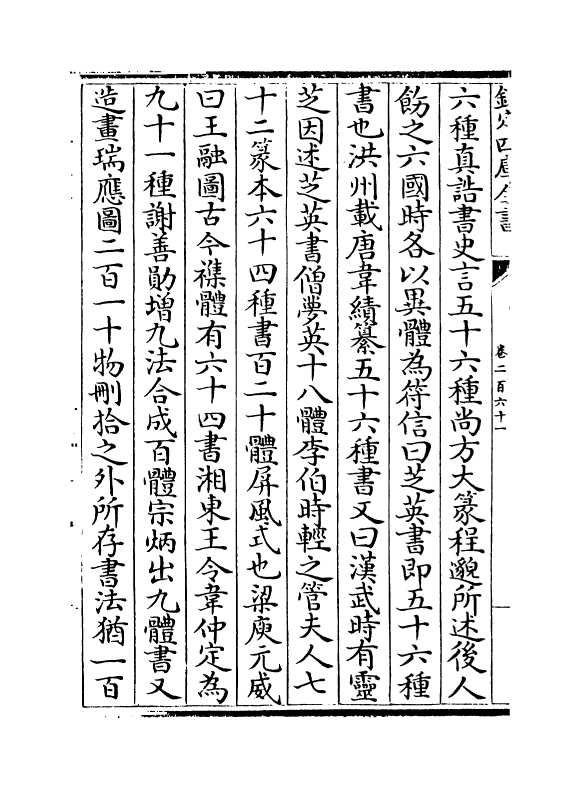 欽定四庫全書
卷二百六十一
六種真誥書史言五十六種尚方大篆程邈所述後人
飭之六國時各以異體為符信曰芝英書即五十六種
書也洪州載唐韋續纂五十六種書又曰漢武時有靈
芝因述芝英書僧夢英十八體李伯時輕之管夫人七
十二篆本六十四種書百二十體屏風式也梁庾元威
曰王融圖古今襍體有六十四書湘東王令韋仲定為
九十一種謝善勛增九法合成百體宗炳出九體書又
造畫瑞應圖二百一十物刪拾之外所存書法猶一百